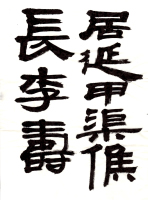 居延甲渠候
長李壽